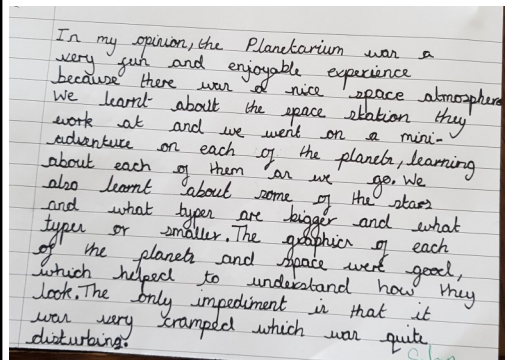 In my opinion, the Planetarium was a
very fun and enjoyable experience
because there was a nice space atmosphere
We learnt about the space station they
work at and we went on a mini-
adventure on each of the planets, learning
about each of them as we go. We
also learnt about some of the stars
and what types are bigger and what
types or smaller. The graphics of each
of the planets and space were good,
which helped to understand how they
look. The only impediment is that it
was very cramped which was quite
disturbing.